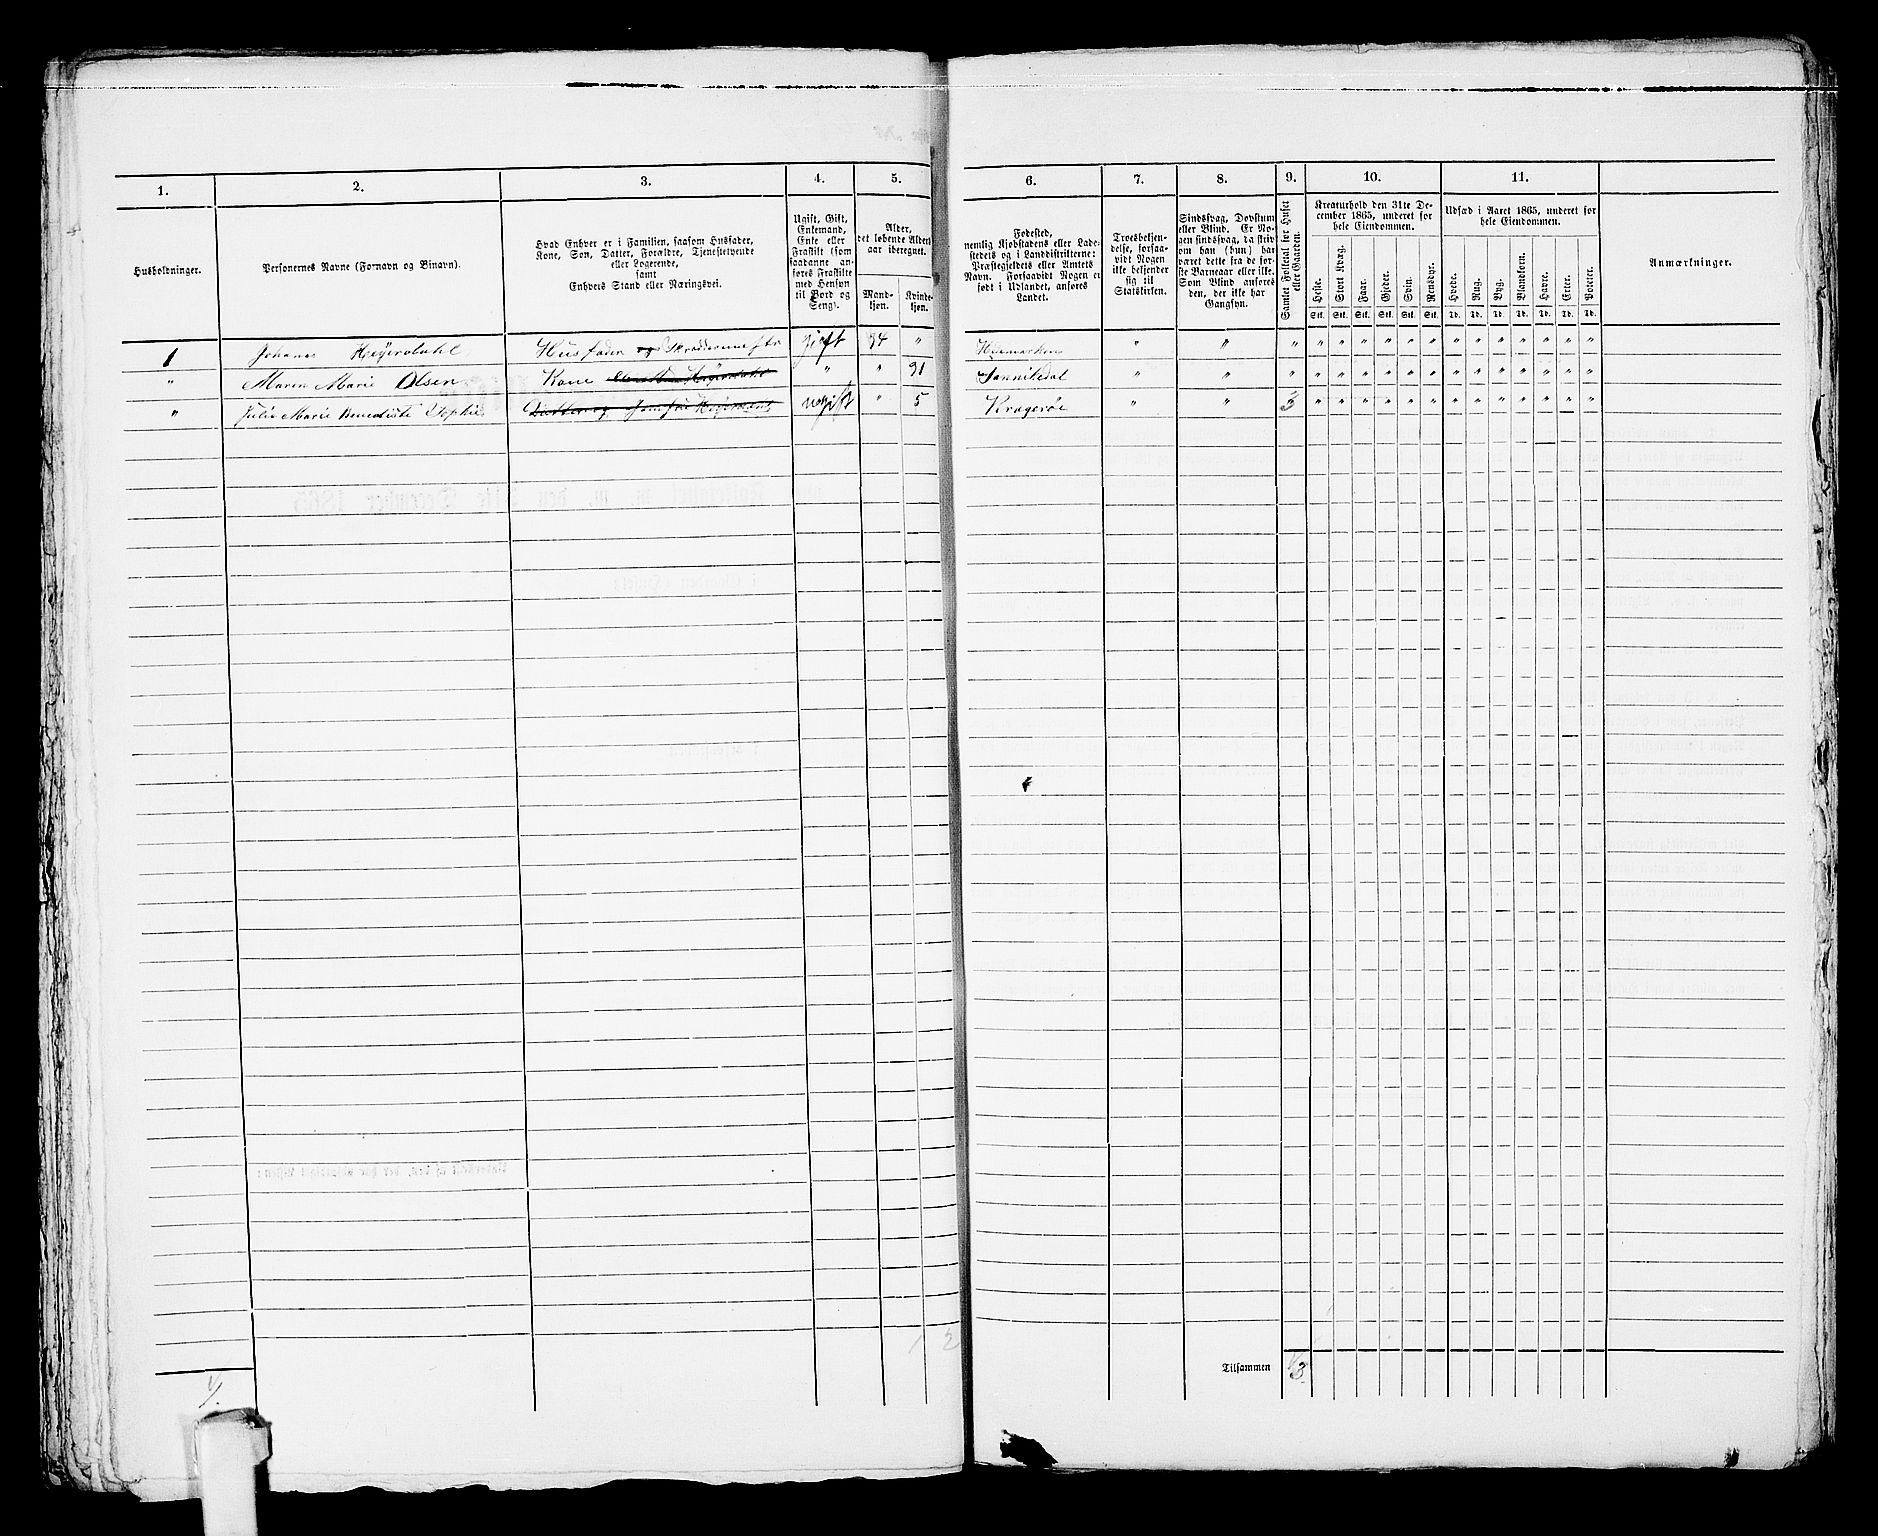 1. 2. 3. 4. 5. 6. 7. 8. 9. 10. 11.
Husholdninger.
Personernes Navne (Fornavn og Binavn).
Hvad Enhver er i Familien, saasom Husfader,
Kone, Søn, Datter, Forældre, Tjenestetyende
eller Logerende,
samt
Enhvers Stand eller Næringsvei.
Ugift, Gift,
Enkemand,
Enke eller
Fraskilt (som
saadanne an-
føres Fraskilte
med Hensyn
til Bord og
Seng).
Alder,
det løbende Alders-
aar iberegnet.
Mand-
kjøn.
Kvinde-
kjøn.
Fødested,
nemlig Kjøbstadens eller Lade-
stedets og i Landdistrikterne:
Præstegjeldets eller Amtets
Navn. Forsaavidt Nogen er
født i Udlandet, anføres
Landet.
Troesbekjen-
delse, forsaa-
vidt Nogen
ikke bekjender
sig til
Statskirken.
Sindssvag, Døvstum
eller Blind. Er No-
gen sindssvag, da skriv
om han (hun) har
været dette fra de før-
ste Barneaar eller ikke.
Som Blind anføres
den, der ikke har
Gangsyn.
Samlet Folketal for Huset
eller Gaarden.
Kreaturhold den 31te De-
cember 1865, underet for
hele Eiendommen.
Heste. Stort Kvæg. Faar. Gjeder. Svin. Rensdyr.
Stk. Stk. Stk. Stk. Stk. Stk.
Udsæd i Aaret 1865, underet for
hele Eiendommen.
Hvede. Rug. Byg. Blandkorn. Havre. Erter. Poteter.
Td. Td. Td. Td. Td. Td. Td.
Anmærkninger.
1 Johanes Heyerdahl Husfader og Skræddermestr gift 34 " Hedemarken " " " " " " " " " " " " " " " "
" Maren Marie Olsen Kone " " 31 Sannikedal " " " " " " " " " " " " " " " "
" Julie Marie Benedicte Sophie Datter og ugift " 5 Kragerøe " " 3 " " " " " " " " " " " " "
1 2
Tilsammen 3